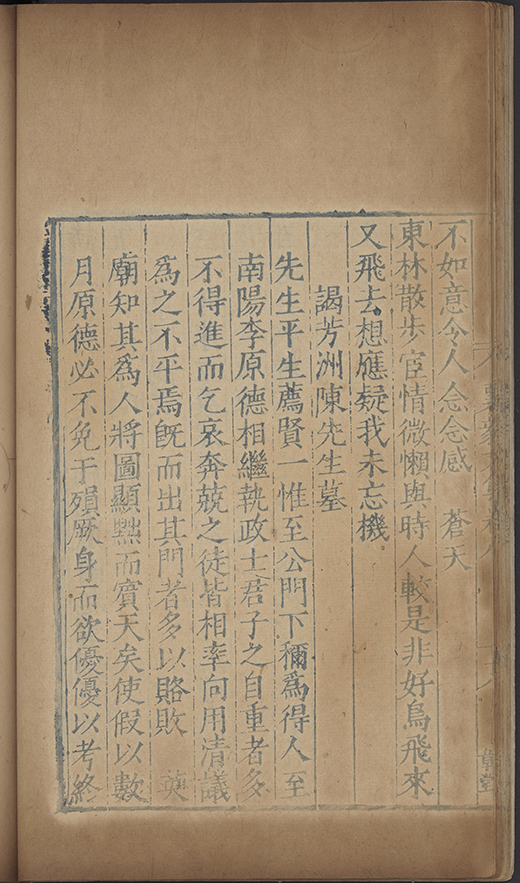 不如意令人念念感 蒼天
東林散步宦情微懶與時人較是非好鳥飛來
又飛去想應疑我未忘機
謁芳洲陳先生墓
先生平生薦賢一惟至公門下稱爲得人至
南陽李原德相繼執政士君子之自重者多
不得進而乞哀奔兢之徒皆相率向用清議
爲之不平焉旣而出其門者多以賂敗 英
廟知其爲人將圖顯黜而賓天矣使假以數
月原德必不免于殞厥身而欲優優以考終